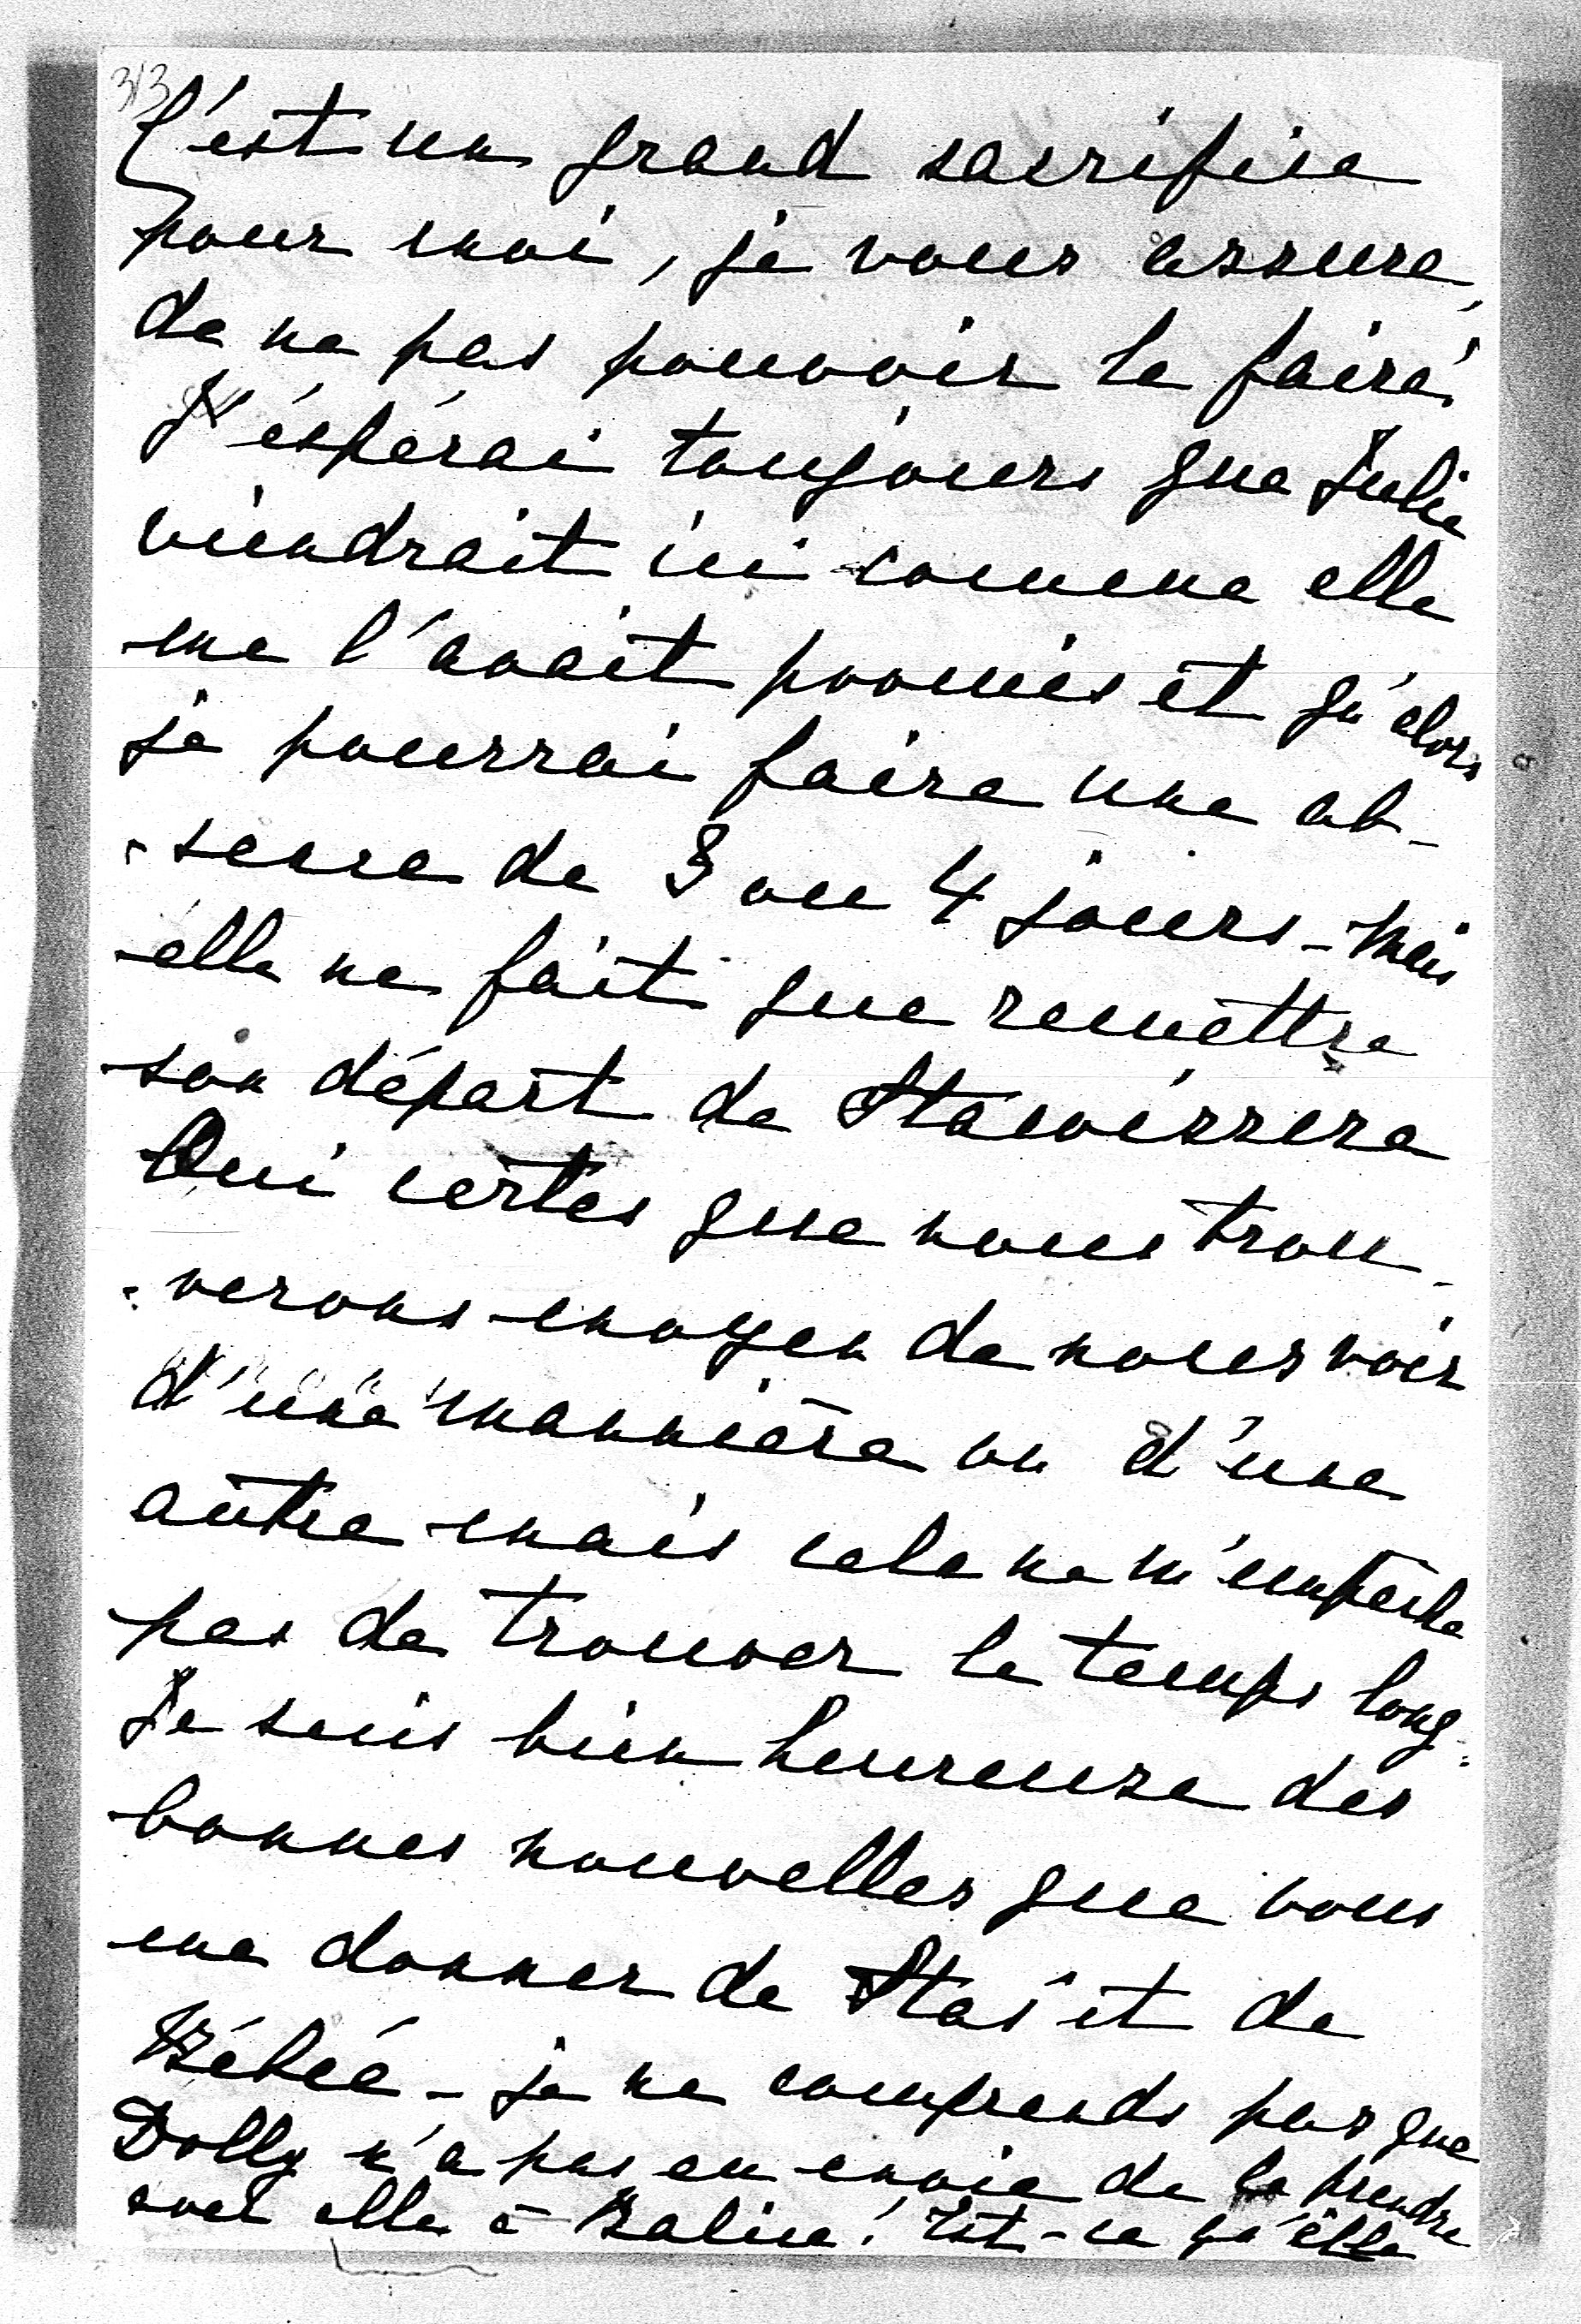 313
C'est un grand sacrifice
pour moi, je vous assure,
de ne pas pouvoir le faire.
J'espérai toujours que Julie
viendrait ici comme elle
me l'avait promis et qu'alors
je pourrai faire une ab-
-sence de 3 ou 4 jours - Mais
elle ne fait que remettre
son départ de Stawiszcze
Oui certes que nous trou-
-verons moyen de nous voir
d'une mannière ou d'une
autre mais cela ne m'empêche
pas de trouver le temps long.
Je suis bien heureuse des
bonnes nouvelles que vous
me donner de Staś et de
Bébée - je ne comprends pas que
Dolly n'a pas eu envie de la prendre
avec elle à Balice! Est-ce qu'elle